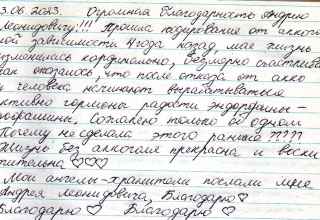 3.06.2023. Огромная благодарность Андрею
Леонидовичу!!! Прошла кодирование от алкого
ной зависимости 4 года назад, моя жизнь
изменилась кардинально, безмерно счастлива
как оказалось, что после отказа от алко
у человека начинают вырабатываться
ктивно гормоны радости эндорфины-
офамины, сожалею только об одном
Почему не сделала этого раньше ????
Жизнь без алкоголя прекрасна и восхи
тительна ♡♡♡
Мои ангелы-хранители послали мне
Андрея Леонидовича, Благодарю♡
Благодарю ♡ Благодарю ♡